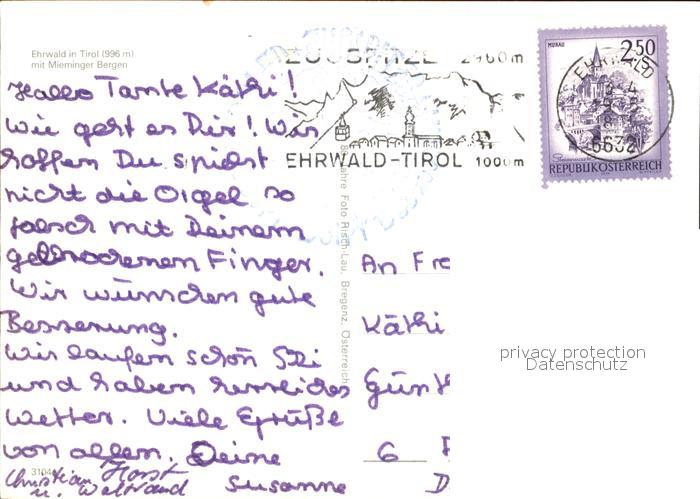 Ehrwald in Tirol (996 m)
mit Mieminger Bergen
ZUGSPITZE 2960m
EHRWALD-TIROL 1000m
MURAU
2.50
EHRWALD
6632
REPUBLIK ÖSTERREICH
Hallo Tante Käthi!
Wie geht es Dir! Wir
hoffen Du spielst
nicht die Orgel so
falsch mit Deinem
gebrochenen Finger.
Wir wünschen gute
Besserung.
Wir laufen schön Ski
und haben herrliches
Wetter. Viele Grüße
von allen. Deine
Susanne
Christian, Horst
u. Waltraud
An Fr
Käthi
Günt
6
D
Foto Risch-Lau, Bregenz, Österreich
3104
privacy protection
Datenschutz